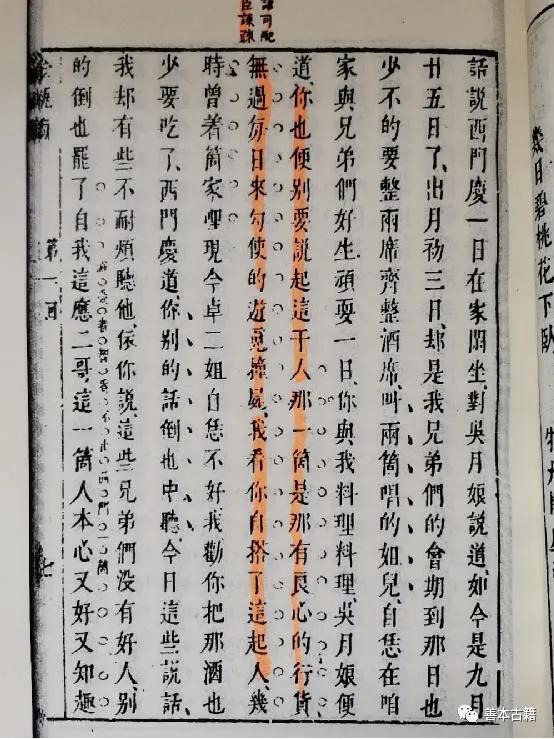 幾日碧桃花下臥
話說西門慶一日在家閑坐、對吳月娘說道、如今是九月
廿五日了、出月初三日、却是我兄弟們的會期、到那日也
少不的要整兩席齊整酒席、叫兩箇唱的姐兒、自恁在咱
家與兄弟們好生頑耍一日、你與我料理料理、吳月娘便
道、你也便别要說起這干人、那一箇是那有良心的行貨、
無過每日來勾使的遊魂撞屍、我看你自搭了這起人、幾
時曾着箇家哩、現今卓二姐自恁不好、我勸你把那酒也
少要吃了、西門慶道、你别的話倒也中聽、今日這些說話、
我却有些不耐煩聽他、依你說、這些兄弟們沒有好人、别
的倒也罷了、自我這應二哥、這一箇人本心又好又知趣
可配
臣諫疏
金瓶梅
第一回
七
善本古籍